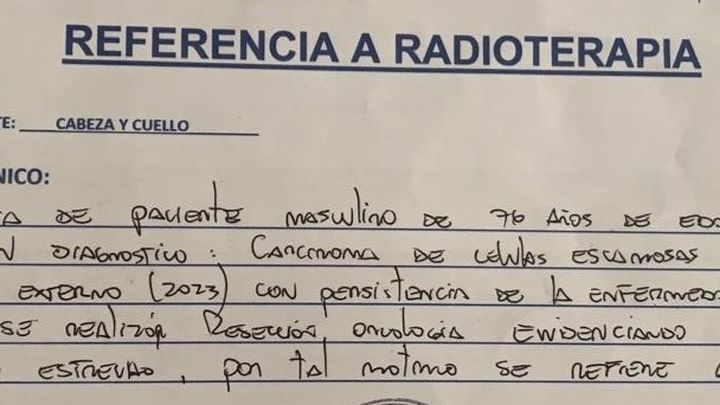 REFERENCIA A RADIOTERAPIA
TE: CABEZA Y CUELLO
NICO:
DE PACIENTE MASCULINO DE 76 AÑOS DE
DIAGNOSTICO: CARCINOMA DE CÉLULAS ESCAMOSAS
EXTERNO (2023) CON PERSISTENCIA DE LA ENFERMED
SE REALIZÓ RESECCIÓN ONCOLOGIA EVIDENCIANDO
por tal motivo SE REFIERE